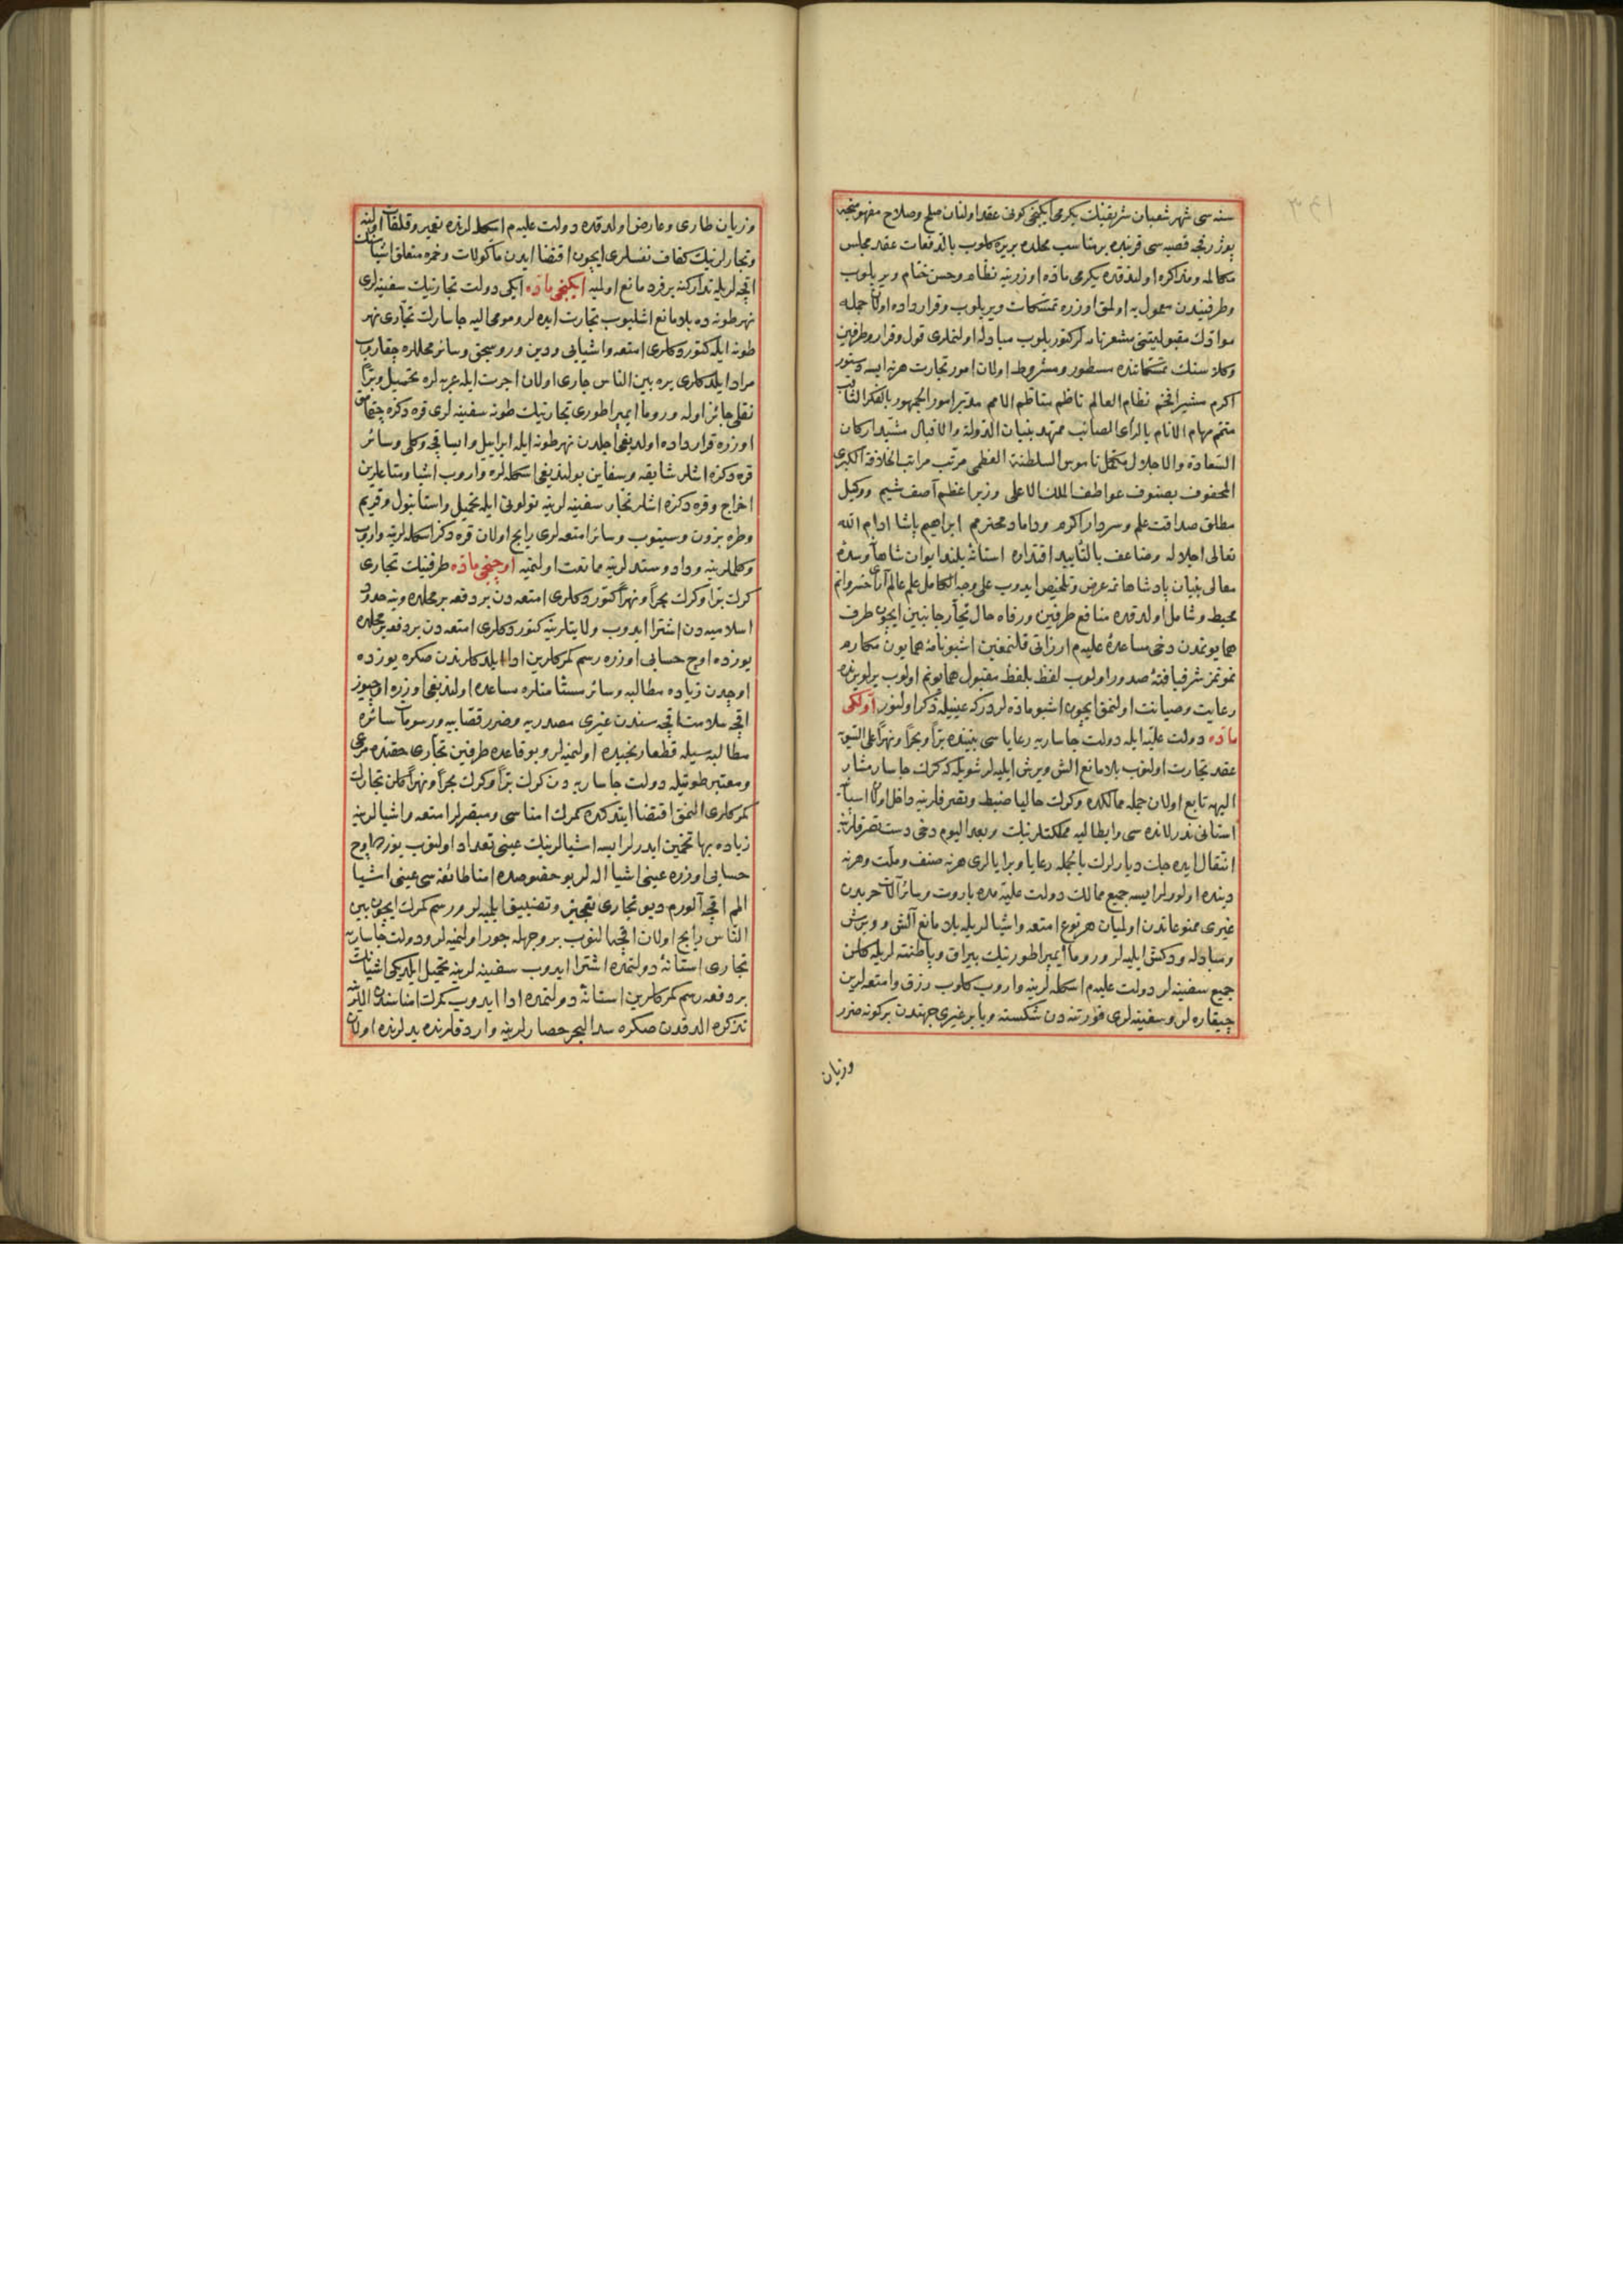 سنه سی شهر شعبان شریفنك یكرمی ایكنجی كونی عقد اولنان صلح و صلاح مفهومنجه
قصبه سی قربنده بر مناسب محلده بر یره كلوب بالدفعات عقد مجلس
مكالمه و مذاكره اولندقده یكرمی ماده اوزرینه نظام و حسن ختام ویریلوب
وطرفیندن معمول به اولمق اوزره تمسكات ویریلوب و قرارداده اولان جمله
موادك مقبولیتنی مشعر نامه لر كتوریلوب مبادله اولنملری قول و قرار و طرفین
وكلاسنك تمسكاتنده مسطور و مشروط اولان امور تجارت هرنه ایسه دستور
اكرم مشیر افخم نظام العالم ناظم مناظم الامم مدبر امور الجمهور بالفكر الثاقب
متمم مهام الانام بالرأی الصائب ممهد بنیان الدولة والاقبال مشید اركان
السعادة والاجلال مكمل ناموس السلطنة العظمی مرتب مراتب الخلافة الكبری
المحفوف بصنوف عواطف الملك الاعلی وزیر اعظم آصف شیم و وكیل
مطلق صداقت علم و سردار اكرم و داماد محترمم ابراهیم پاشا ادام الله
تعالی اجلاله وضاعف بالتأیید اقتداره استانۀ بلند ایوان شاهانه و سدۀ
معالی بنیان پادشاهانه مه عرض و تلخیص ایدوب علی وجه الكامل علم عالم آرای خسروانم
محیط و شامل اولدقده منافع طرفین و رفاه حال تجار جانبین ایچون طرف
همایونمدن دخی مساعدۀ علیه م ارزانی قلنمغین اشبو نامۀ همایون مكارم
نمونمز شرفیافتۀ صدور اولوب لفظ بلفظ مقبول همایونم اولوب یرلو یرنده
رعایت و صیانت اولنمق ایچون اشبو ماده لردركه عینیله ذكر اولنور اولكی
ماده دولت علیه ایله دولت جاساریه رعایاسی بیننده براً و بحراً و نهراً علی السویه
عقد تجارت اولنوب بلا مانع الش ویرش ایلیه لر شویله كه كرك جاسار مشار
الیهه تابع اولان جمله ممالكده و كرك حالیا ضبط و تصرفلرینه داخل اولان اسپانیه
استانی ندرلانده سی و ایطالیه مملكتلرینك و بعد الیوم دخی دست تصرفلرینه
انتقال ایده جك دیارلرك بالجمله رعایا و برایالری هرنه صنف و ملت و هرنه
دینده اولورلر ایسه جمیع ممالك دولت علیه مده باروت و سائر آلات حربدن
غیری ممنوعاتدن اولمیان هر نوع امتعه و اشیالریله بلا مانع آلش و ویرش
و مبادله و دكش ایلیه لر و روما ایمپراطورینك بیراق و پاطنته لریله كلان
جمیع سفینه لر دولت علیه م اسكله لرینه واروب كلوب رزق و امتعه لرین
چیقاره لر و سفینه لری فورتنه دن شكسته و یا بر غیری جهتدن بر كونه ضرر
وزیان
وزیان طاری و عارض اولدقده دولت علیه م اسكله لرنده تعمیر و قلفات اولنه
و تجارلرینك كفاف نفسلری ایچون اقتضا ایدن مأكولات و غیره متعلق اشیانك
اقچه لریله تداركنه بر فرد مانع اولمیه ایكنجی ماده ایكی دولت تجارینك سفینه لری
نهر طونه ده بلا مانع اشلیوب تجارت ایده لر و مومی الیه جاسارك تجاری نهر
طونه ایله كتوردكلری امتعه و اشیایی ودین و روسجق و سائر محللره چقاروب
مراد ایلدكلری یره بین الناس جاری اولان اجرت ایله عربه لره تحمیل و براً
نقلی جائز اوله و روما ایمپراطوری تجارینك طونه سفینه لری قره دكزه چقمامق
اوزره قرارداده اولدیغی اجلدن نهر طونه ایله ابراییل و ایساقچه و كلی و سائر
قره دكزه اشلر شایقه و سفاین بولندیغی اسكله لره واروب اشیا و متاعلرین
اخراج و قره دكزه اشلر تجار سفینه لرینه نولونی ایله تحمیل و استانبول و قریم
و طره بزون و سینوب و سائر امتعه لری رایج اولان قره دكز اسكله لرینه واروب
و كلملرینه و داد و ستدلرینه ممانعت اولنمیه اوچنجی ماده طرفینك تجاری
كرك براً و كرك بحراً و نهراً كتوردكلری امتعه دن بر دفعه بر محلده و ینه حدود
اسلامیه دن اشترا ایدوب ولایتلرینه كتوردكلری امتعه دن بر دفعه بر محلده
یوزده اوچ حسابی اوزره رسم كمركلرین ادا ایلدكلرندن صكره یوزده
اوچدن زیاده مطالبه و سائر مستأمنلره مساعده اولندیغی اوزره اوچیوز
اقچه سلامت اقچه سندن غیری مصدریه و ضرر قصابیه و رسومات سائره
مطالبه سیله قطعا رنجیده اولنمیه لر و بو قاعده طرفین تجاری حقنده مرعی
و معتبر طوتیله دولت جاساریه دن كرك براً و كرك بحراً و نهراً كلن تجارك
كمركلری النمق اقتضا ایتدكده كمرك امناسی و مبصرلر امتعه و اشیالرینه
زیاده بها تخمین ایدرلر ایسه اشیالرینك عینی تعداد اولنوب یوزده اوچ
حسابی اوزره عینی اشیا اله لر بو خصوصده امنا طائفه سی عینی اشیا
المم اقچه آلورم دیو تجاری تعجیز و تضییق ایلمیه لر و رسم كمرك ایچون بین
الناس رایج اولان اقچه النوب بر وجهله جور اولنمیه لر و دولت جاساریه
تجاری استانۀ دولتمده اشترا ایدوب سفینه لرینه تحمیل ایلدیكی اشیانك
بر دفعه رسم كمركلرین استانۀ دولتمده ادا ایدوب كمرك امناسندن اللرینه
تذكره الدقدن صكره سد البحر حصارلرینه واردقلرنده یدلرنده اولان